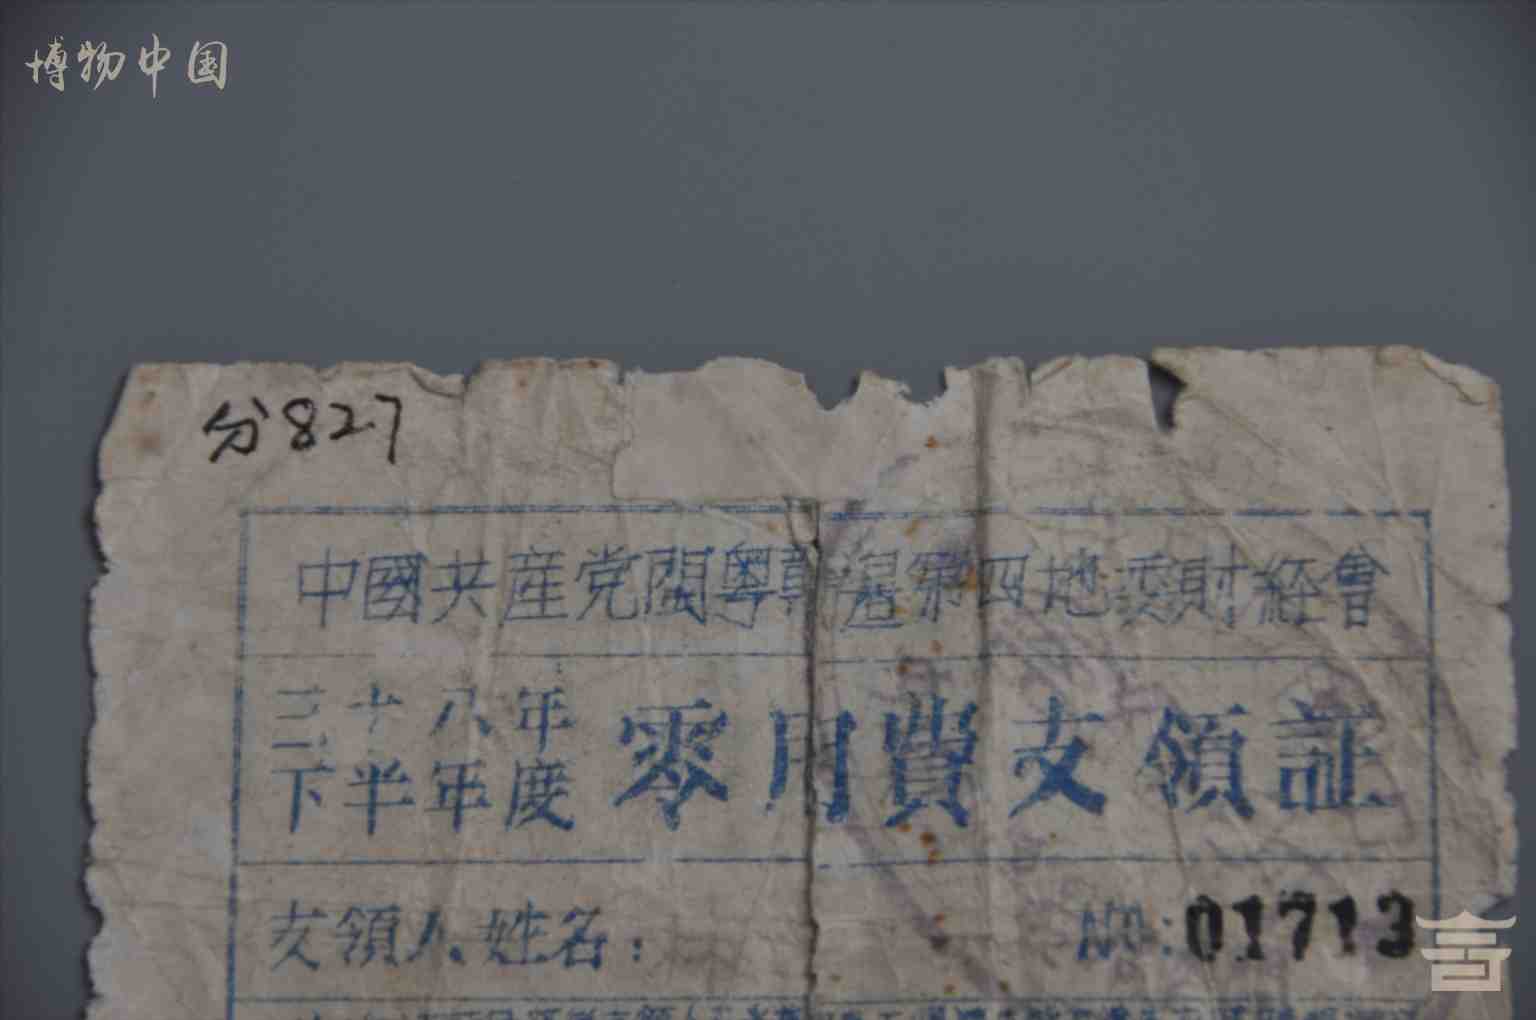 博物中国
分827
中國共産党閩粤贛邊第四地委財經會
三十八年
下半年度
零用費支領証
支領人姓名：
NO:01713